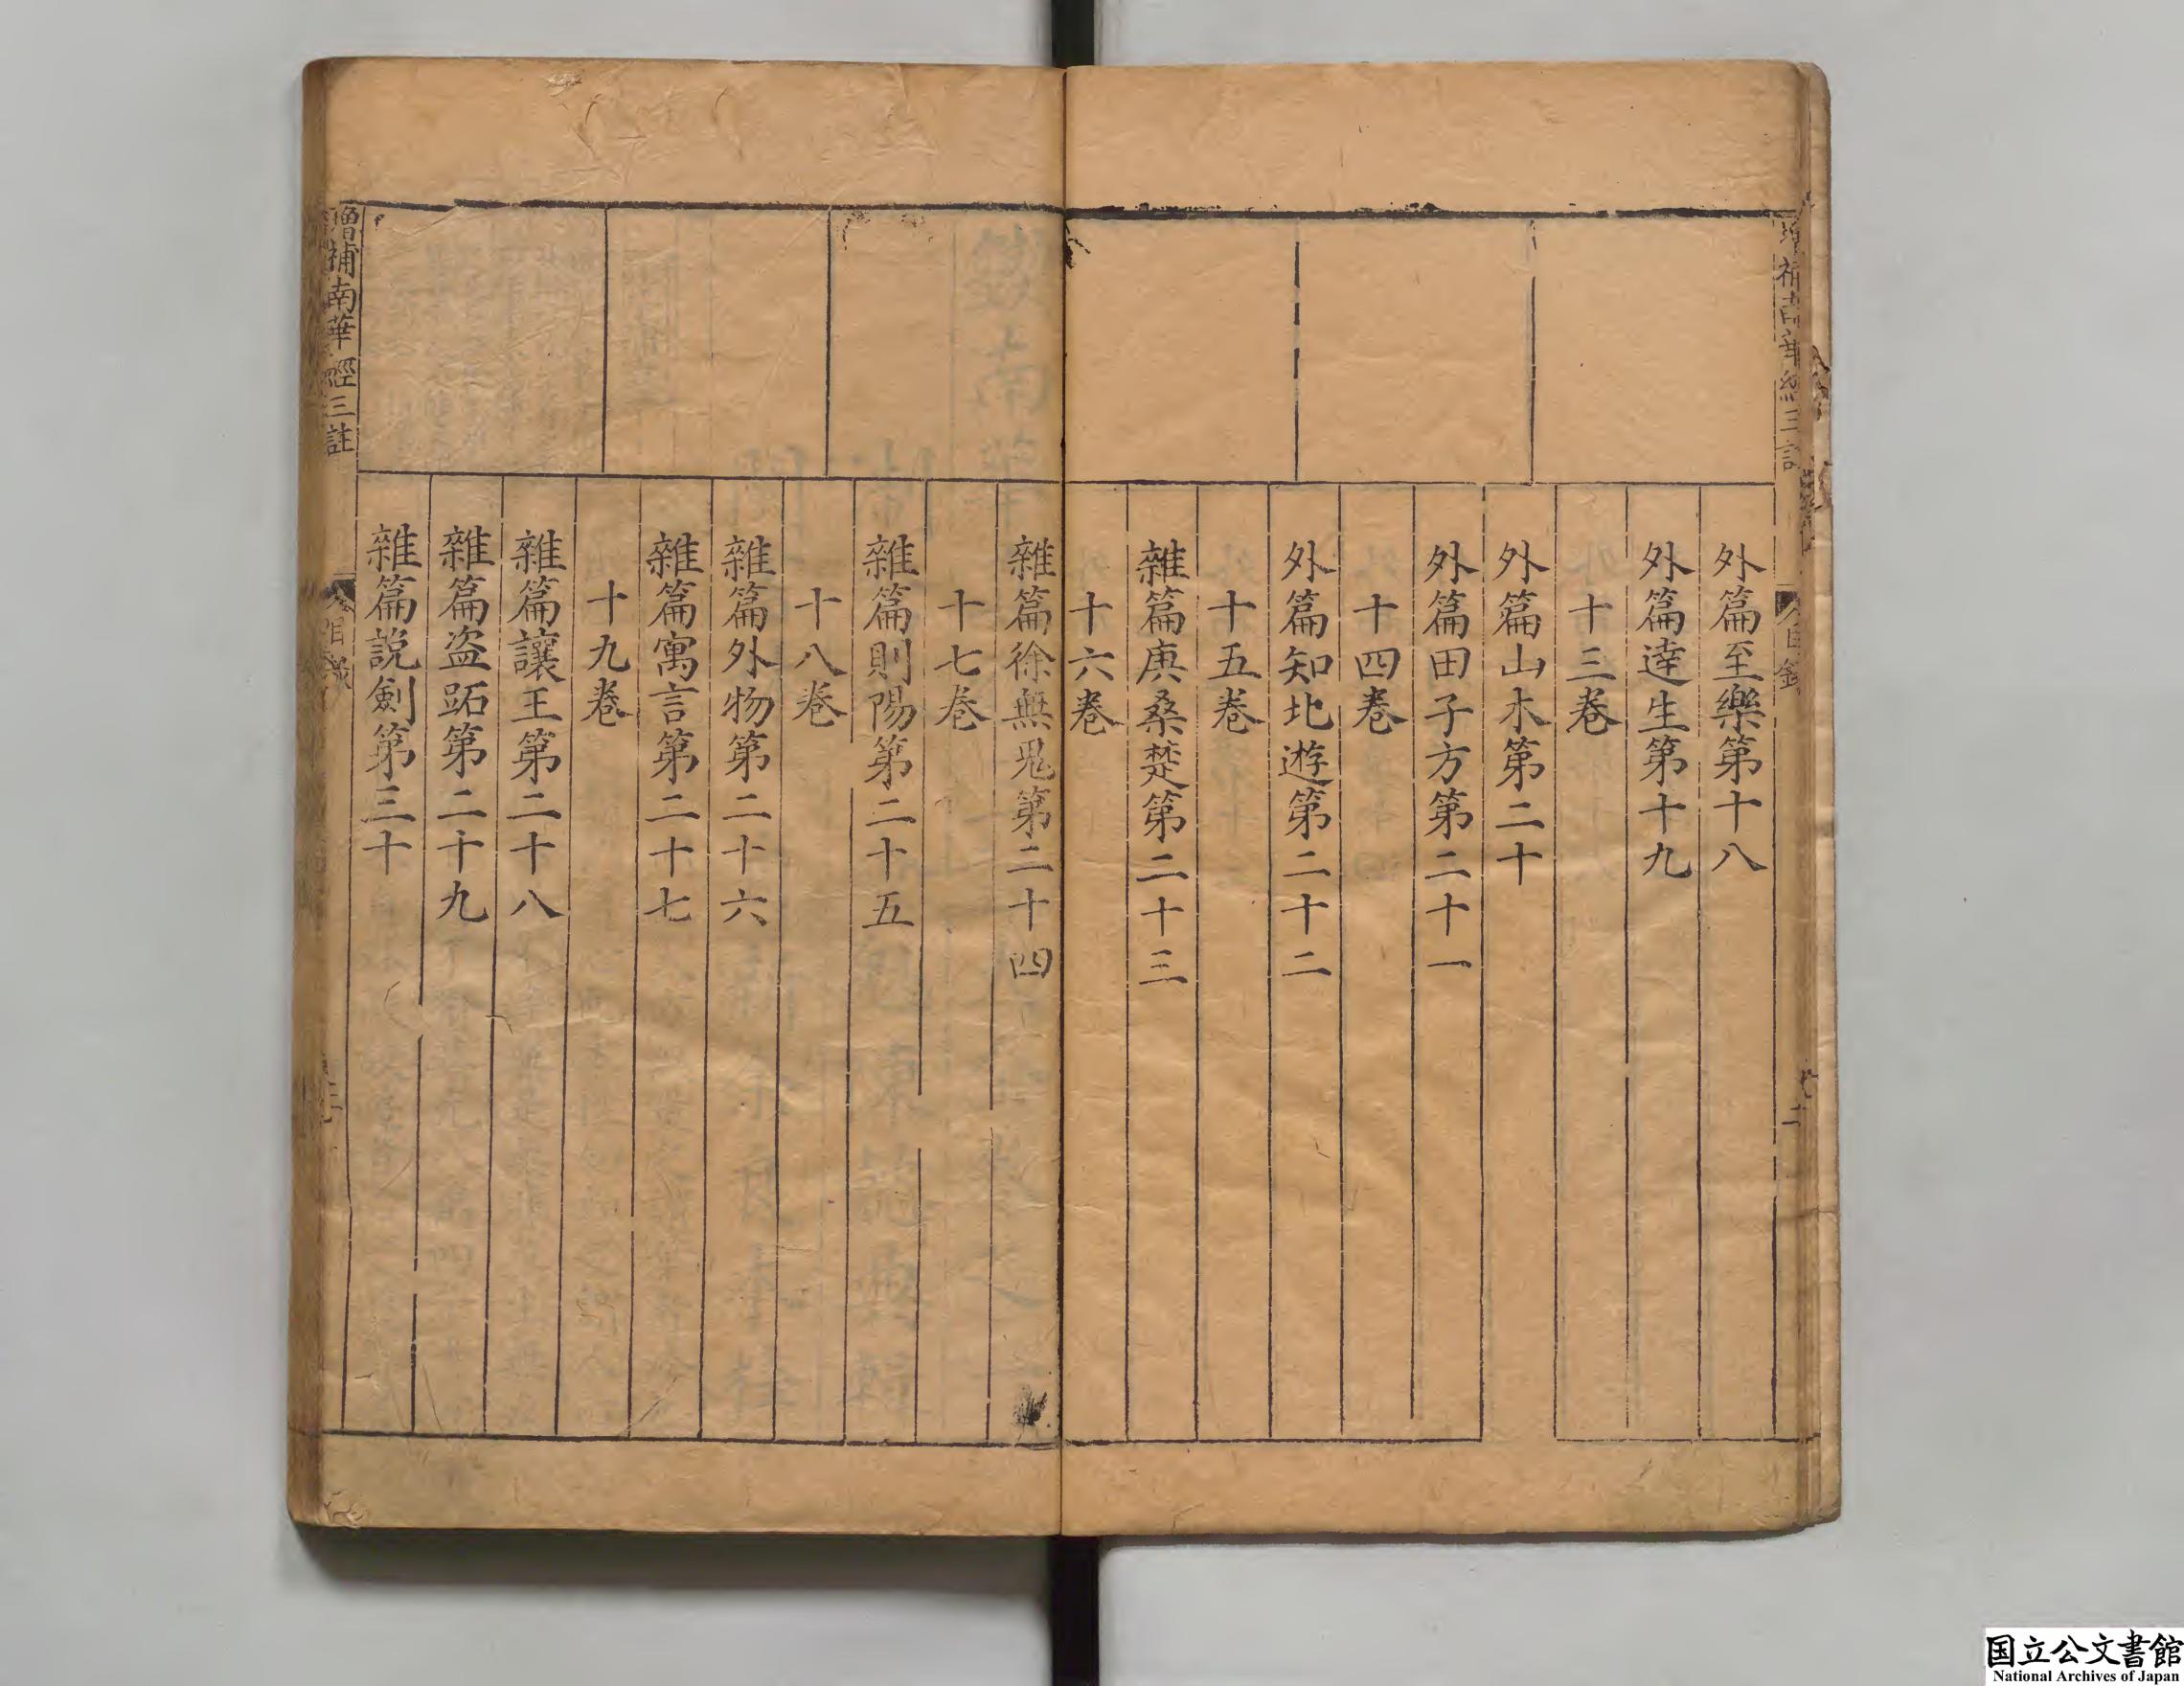 增補南華經三註
目錄
二
外篇至樂第十八
外篇達生第十九
十三卷
外篇山木第二十
外篇田子方第二十一
十四卷
外篇知北遊第二十二
十五卷
雜篇庚桑楚第二十三
十六卷
雜篇徐無鬼第二十四
十七卷
雜篇則陽第二十五
十八卷
雜篇外物第二十六
雜篇寓言第二十七
十九卷
雜篇讓王第二十八
雜篇盗跖第二十九
雜篇説劍第三十
增補南華經三註
目錄
国立公文書館
National Archives of Japan